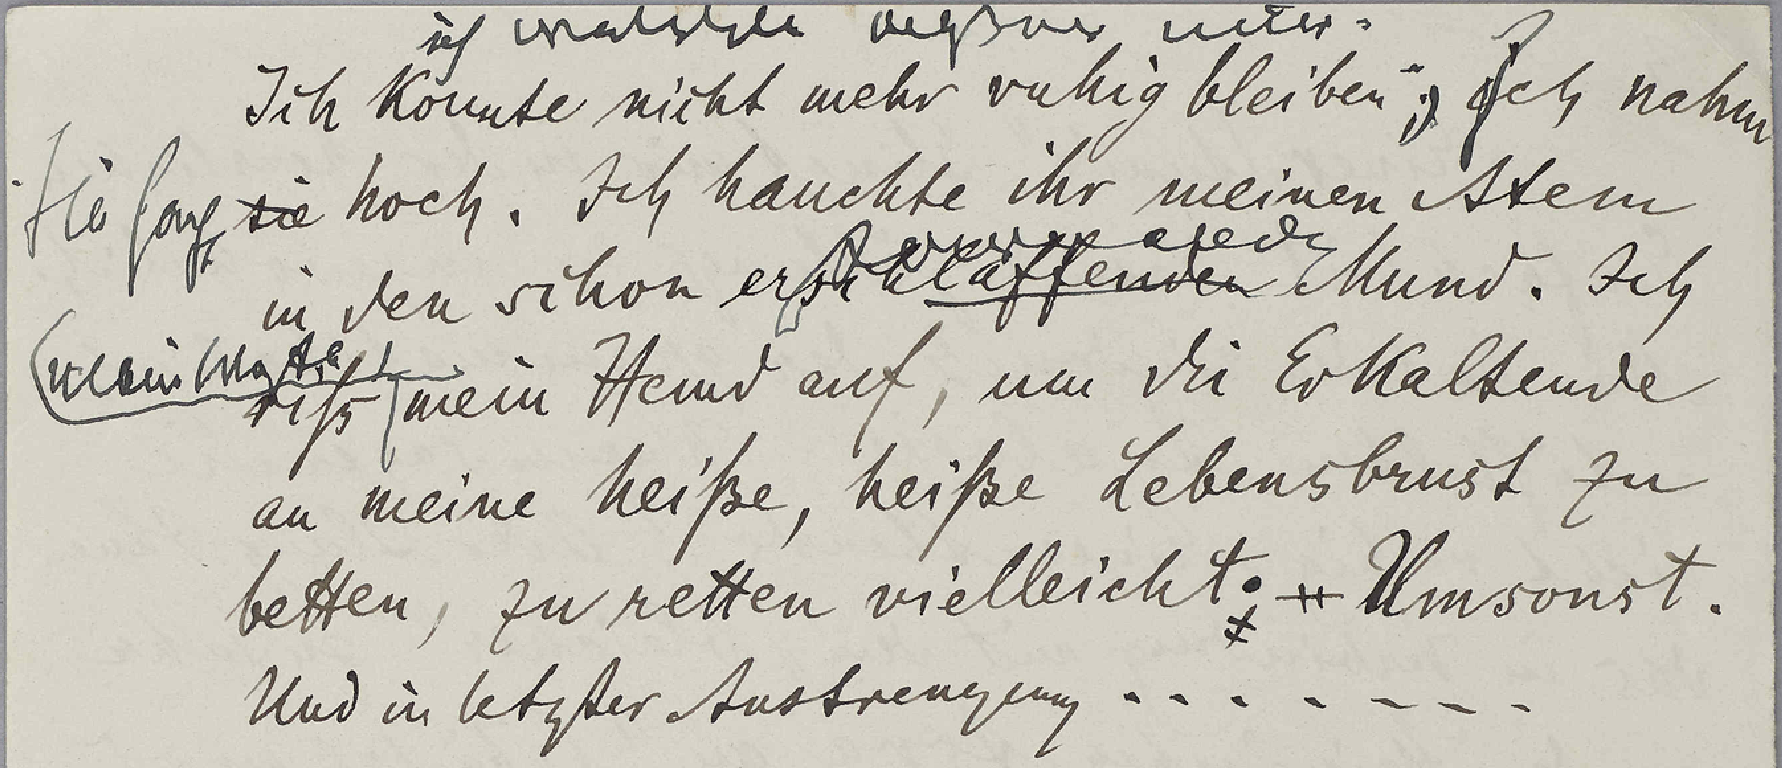 ich
Ich konnte nicht mehr ruhig bleiben; Ich nahm
sie hoch. Ich hauchte ihr meinen Atem
in den schon erschlaffenden Mund. Ich
riß mein Hemd auf, um die Erkaltende
an meine heiße, heiße Lebensbrust zu
betten, zu retten vielleicht: Umsonst.
Und in letzter Anstrengung . . - . - - - .